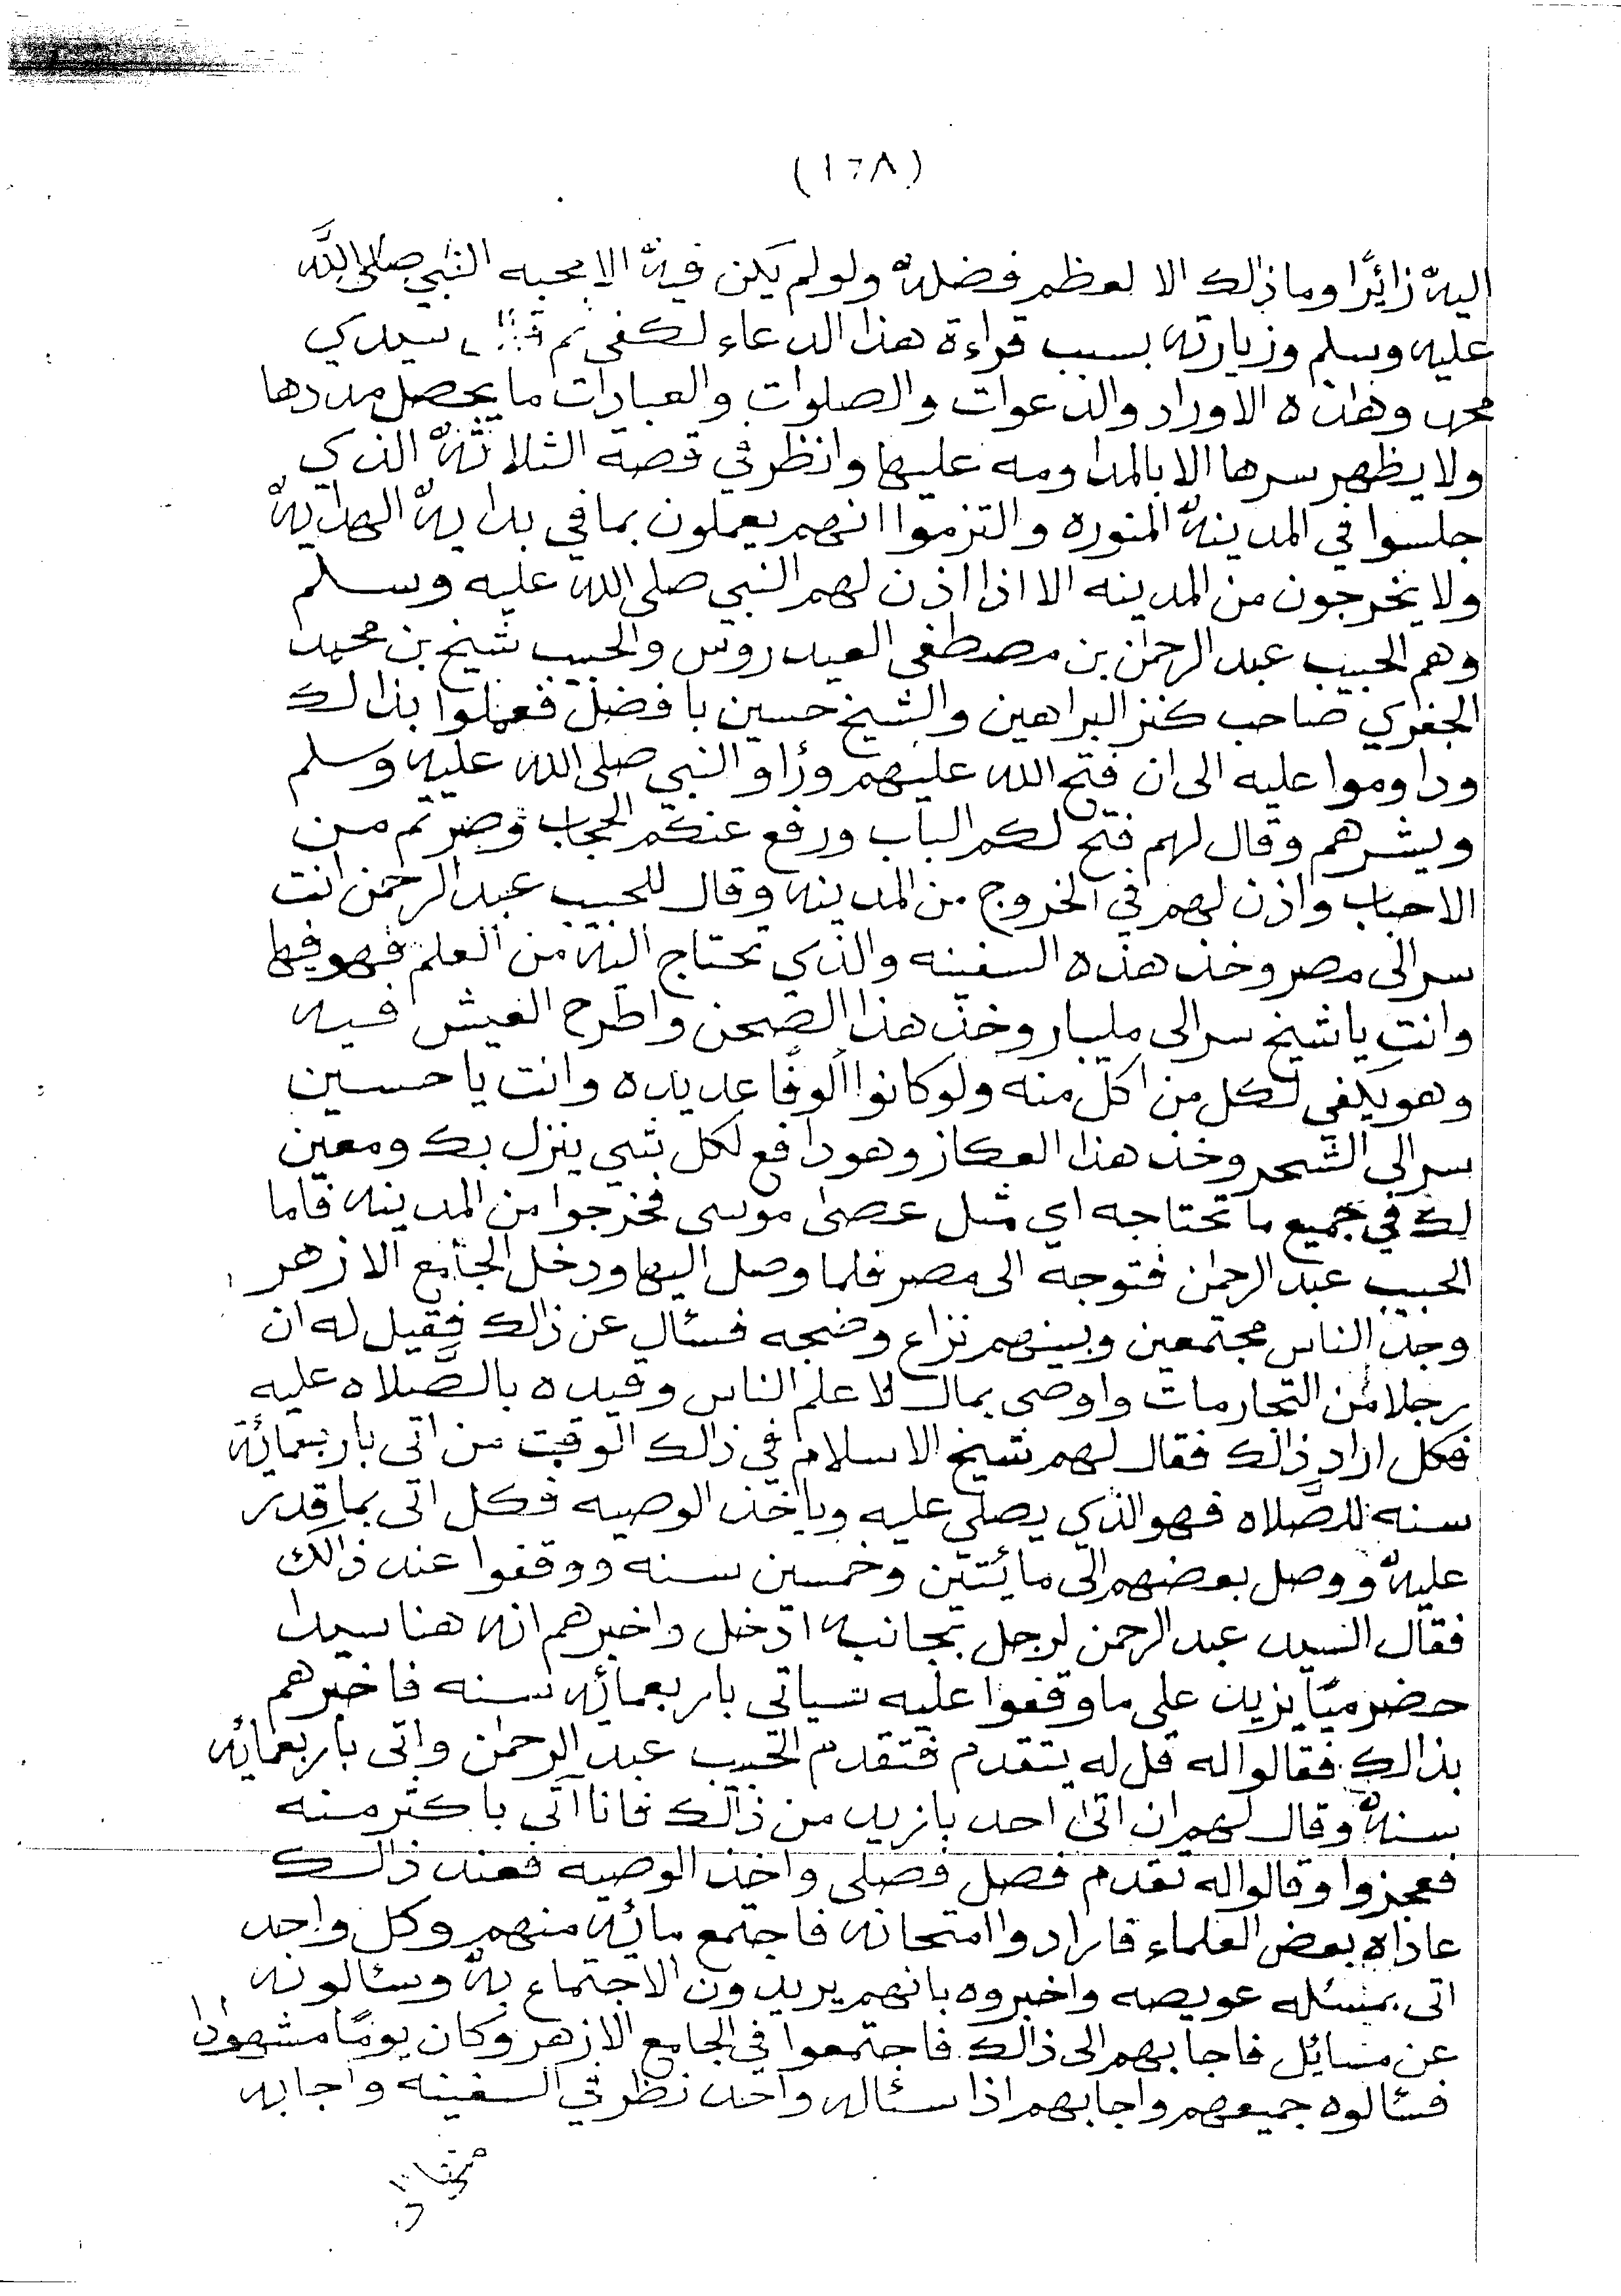 (١٦٨)
اليهْ زائِرًا وما ذالك الا لعظم فضلهْ ولو لم يكن فيهْ الا محبه النبي صلى اللَّه
عليه وسلم وزيارته بسبب قراءة هذا الدعاء لكفى ثم سيدي
محمد وهاذه الاوراد والدعوات والصلوات والعبادات ما يحصل مددها
ولا يظهر سرها الا بالمداومه عليها وانظر في قصة الثلاثهْ الذي
جلسوا في المدينهْ المنوره والتزموا انهم يعملون بما في بدايهْ الهدايهْ
ولا يخرجون من المدينه الا اذا اذن لهم النبي صلى الله عليه وسلم
وهم الحبيب عبد الرحمٰن بن مصطفى العيدروس والحبيب شيخ بن محمد
الجفري صاحب كنز البراهين والشيخ حسين بافضل فعملوا بذالك
وداوموا عليه الى ان فتح الله عليهم ورأو النبي صلى الله عليه وسلم
وبشرهم وقال لهم فتح لكم الباب ورفع عنكم الحجاب وصرتم من
الاحباب واذن لهم في الخروج من المدينه وقال للحبيب عبد الرحمن انت
سر الى مصر وخذ هذه السفينه والذي تحتاج اليه من العلم فهو فيها
وانت يا شيخ سر الى مليبار وخذ هذا الصحن واطرح العيش فيه
وهو يكفي لكل من اكل منه ولو كانوا ألوفًا عديده وانت يا حسين
سر الى الشحر وخذ هذا العكاز وهو دافع لكل شي ينزل بك ومعين
لك في جميع ما تحتاجه اي مثل عصىٰ موسى فخرجوا من المدينه فاما
الحبيب عبد الرحمٰن فتوجه الى مصر فلما وصل اليها ودخل الجامع الازهر
وجد الناس مجتمعين وبينهم نزاع وضجه فسئال عن ذالك فقيل له ان
رجلا من التجار مات واوصى بمال لاعلم الناس وقيده بالصَّلاه عليه
فكل اراد ذالك فقال لهم شيخ الاسلام في ذالك الوقت من اتى باربعمائة
سنه للصَّلاه فهو الذي يصلي عليه وياخذ الوصيه فكل اتى بما قدر
عليهْ ووصل بعضهم الى مائتين وخمسين سنه ووقفوا عند ذالك
فقال السيد عبد الرحمن لرجل بجانبه ادخل واخبرهم انه هنا سيدا
حضرميًا يزيد على ما وقفوا عليه سياتي باربعمائه سنه فاخبرهم
بذالك فقالوا له قل له يتقدم فتقدم الحبيب عبد الرحمٰن واتى باربعمائه
سنهْ وقال لهم ان اتىٰ احد بازيد من ذالك فانا آتى باكثر منه
فعجزوا وقالوا له تقدم فصل فصلى واخذ الوصيه فعند ذالك
عاداه بعض العلماء فارادوا امتحانه فاجتمع مائه منهم وكل واحد
اتى بمسئله عويصه واخبروه بانهم يريدون الاجتماع بهْ وسئالونه
عن مسائل فاجابهم الى ذالك فاجتمعوا في الجامع الازهر وكان يومًا مشهودا
فسئالوه جميعهم واجابهم اذا سئاله واحد نظر في السفينه واجابه